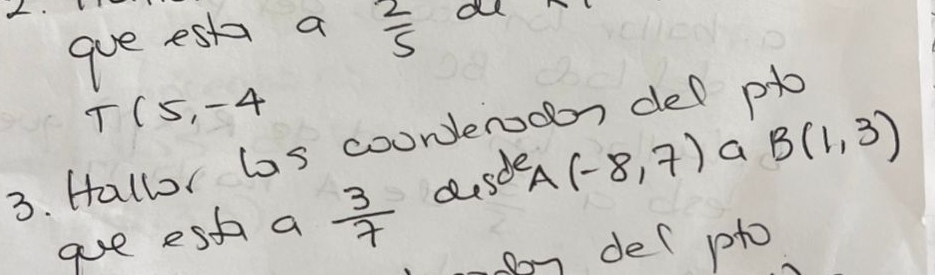 2.
que esta a 2/5 de
T(5,-4
3. Hallar las coordenadas del pto
que esta a 3/7 desde A(-8,7) a B(1,3)
del pto